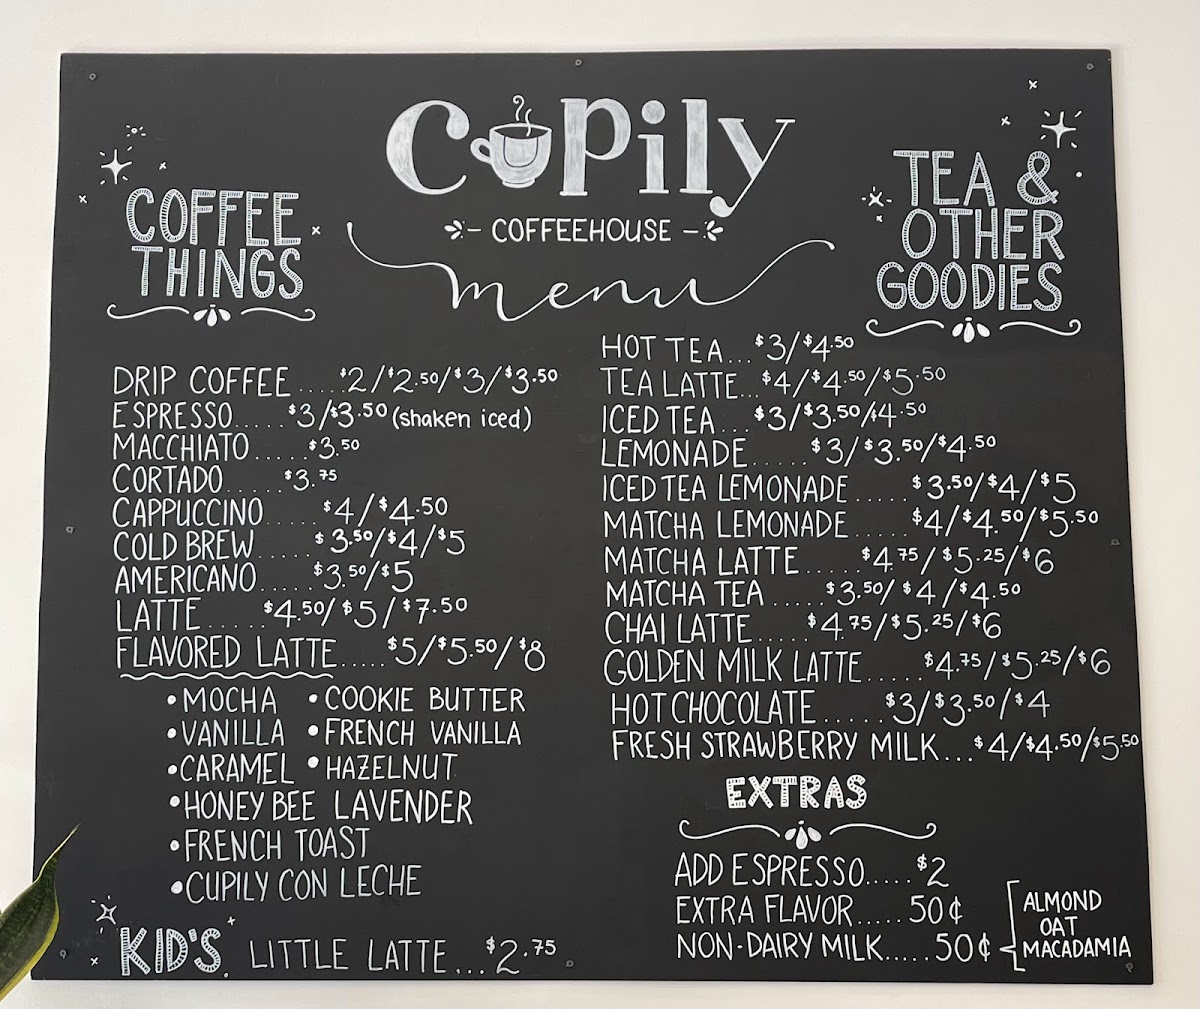 Cupily
COFFEEHOUSE
menu
COFFEE
THINGS
DRIP COFFEE.....$2/$2.50/$3/$3.50
ESPRESSO..... $3/$3.50 (shaken iced)
MACCHIATO...... $3.50
CORTADO...... $3.75
CAPPUCCINO.... $4/$4.50
COLD BREW...... $3.50/$4/$5
AMERICANO...... $3.50/$5
LATTE...... $4.50/$5/$7.50
FLAVORED LATTE.....$5/$5.50/$8
•MOCHA •COOKIE BUTTER
•VANILLA •FRENCH VANILLA
•CARAMEL •HAZELNUT
•HONEY BEE LAVENDER
•FRENCH TOAST
•CUPILY CON LECHE
KID'S LITTLE LATTE...$2.75
TEA &
OTHER
GOODIES
HOT TEA...$3/$4.50
TEA LATTE..$4/$4.50/$5.50
ICED TEA....$3/$3.50/$4.50
LEMONADE...... $3/$3.50/$4.50
ICED TEA LEMONADE..... $3.50/$4/$5
MATCHA LEMONADE..... $4/$4.50/$5.50
MATCHA LATTE..... $4.75/$5.25/$6
MATCHA TEA......$3.50/$4/$4.50
CHAI LATTE..... $4.75/$5.25/$6
GOLDEN MILK LATTE......$4.75/$5.25/$6
HOT CHOCOLATE...... $3/$3.50/$4
FRESH STRAWBERRY MILK...$4/$4.50/$5.50
EXTRAS
ADD ESPRESSO.....$2
EXTRA FLAVOR.....50¢
NON-DAIRY MILK.....50¢
ALMOND
OAT
MACADAMIA